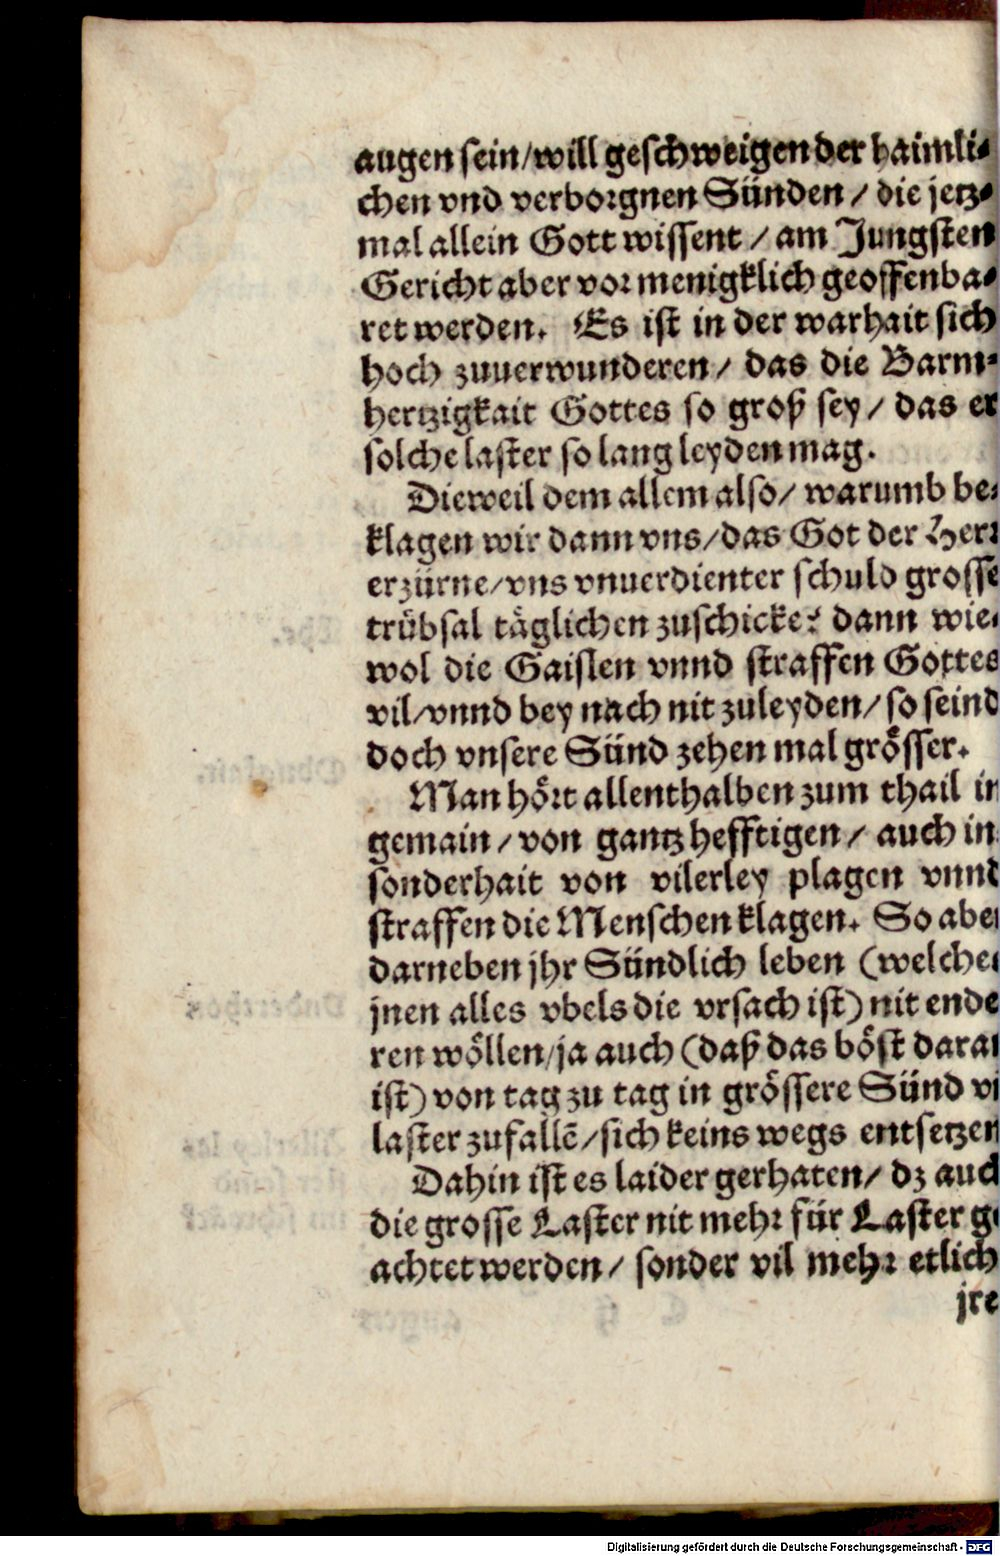 augen sein/will geschweigen der haimli⸗
chen vnd verborgnen Sünden / die jetz⸗
mal allein Gott wissent / am Jungsten
Gericht aber vor menigklich geoffenba⸗
ret werden. Es ist in der warhait sich
hoch zuuerwunderen / das die Barm⸗
hertzigkait Gottes so groß sey / das er
solche laster so lang leyden mag.
Dieweil dem allem also / warumb be⸗
klagen wir dann vns / das Got der Herr
erzürne / vns vnuerdienter schuld grosse
trübsal täglichen zuschicke? dann wie⸗
wol die Gaislen vnnd straffen Gottes
vil / vnnd bey nach nit zuleyden / so seind
doch vnsere Sünd zehen mal grösser.
Man hört allenthalben zum thail in
gemain / von gantz hefftigen / auch in
sonderhait von vilerley plagen vnnd
straffen die Menschen klagen. So aber
darneben jhr Sündlich leben (welches
jnen alles vbels die vrsach ist) nit ende
ren wöllen / ja auch (daß das böst daran
ist) von tag zu tag in grössere Sünd vñ
laster zufallē / sich keins wegs entsetzen
Dahin ist es laider gerhaten / dz auch
die grosse Laster nit mehr für Laster ge
achtet werden / sonder vil mehr etlich
jre
Digitalisierung gefördert durch die Deutsche Forschungsgemeinschaft - DFG